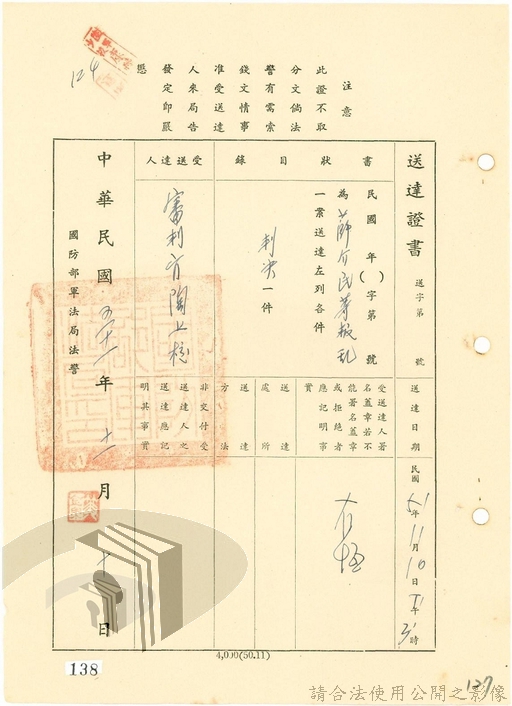 124
注意
此證不取
分文倘法
警有需索
錢文情事
准受送達
人來局告
發定即嚴
懲
送達證書
送字第 號
送達日期
民國51年11月10日下午3時
書狀
民國 年( )字第 號
為薛介民等叛亂
一案送達左列各件
受送達人署
名蓋章若不
能署名蓋章
或拒絕者
應記明事
實
目錄
判決一件
送達
處所
受送達人
審判官陶上校
送達
方法
非交付受
送達人之
送達應記
明其事實
中華民國五十一年十一月十日
國防部軍法局法警
4,000(50.11)
138
127
請合法使用公開之影像